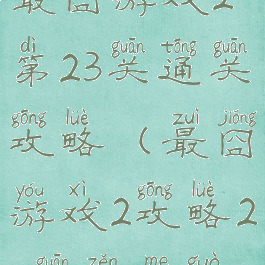 最囧游戏2
dì guān tōng guān
第23关通关
gōng lüè zuì jiǒng
攻略（最囧
yóu xì gōng lüè
游戏2攻略2
guān zěn me guò